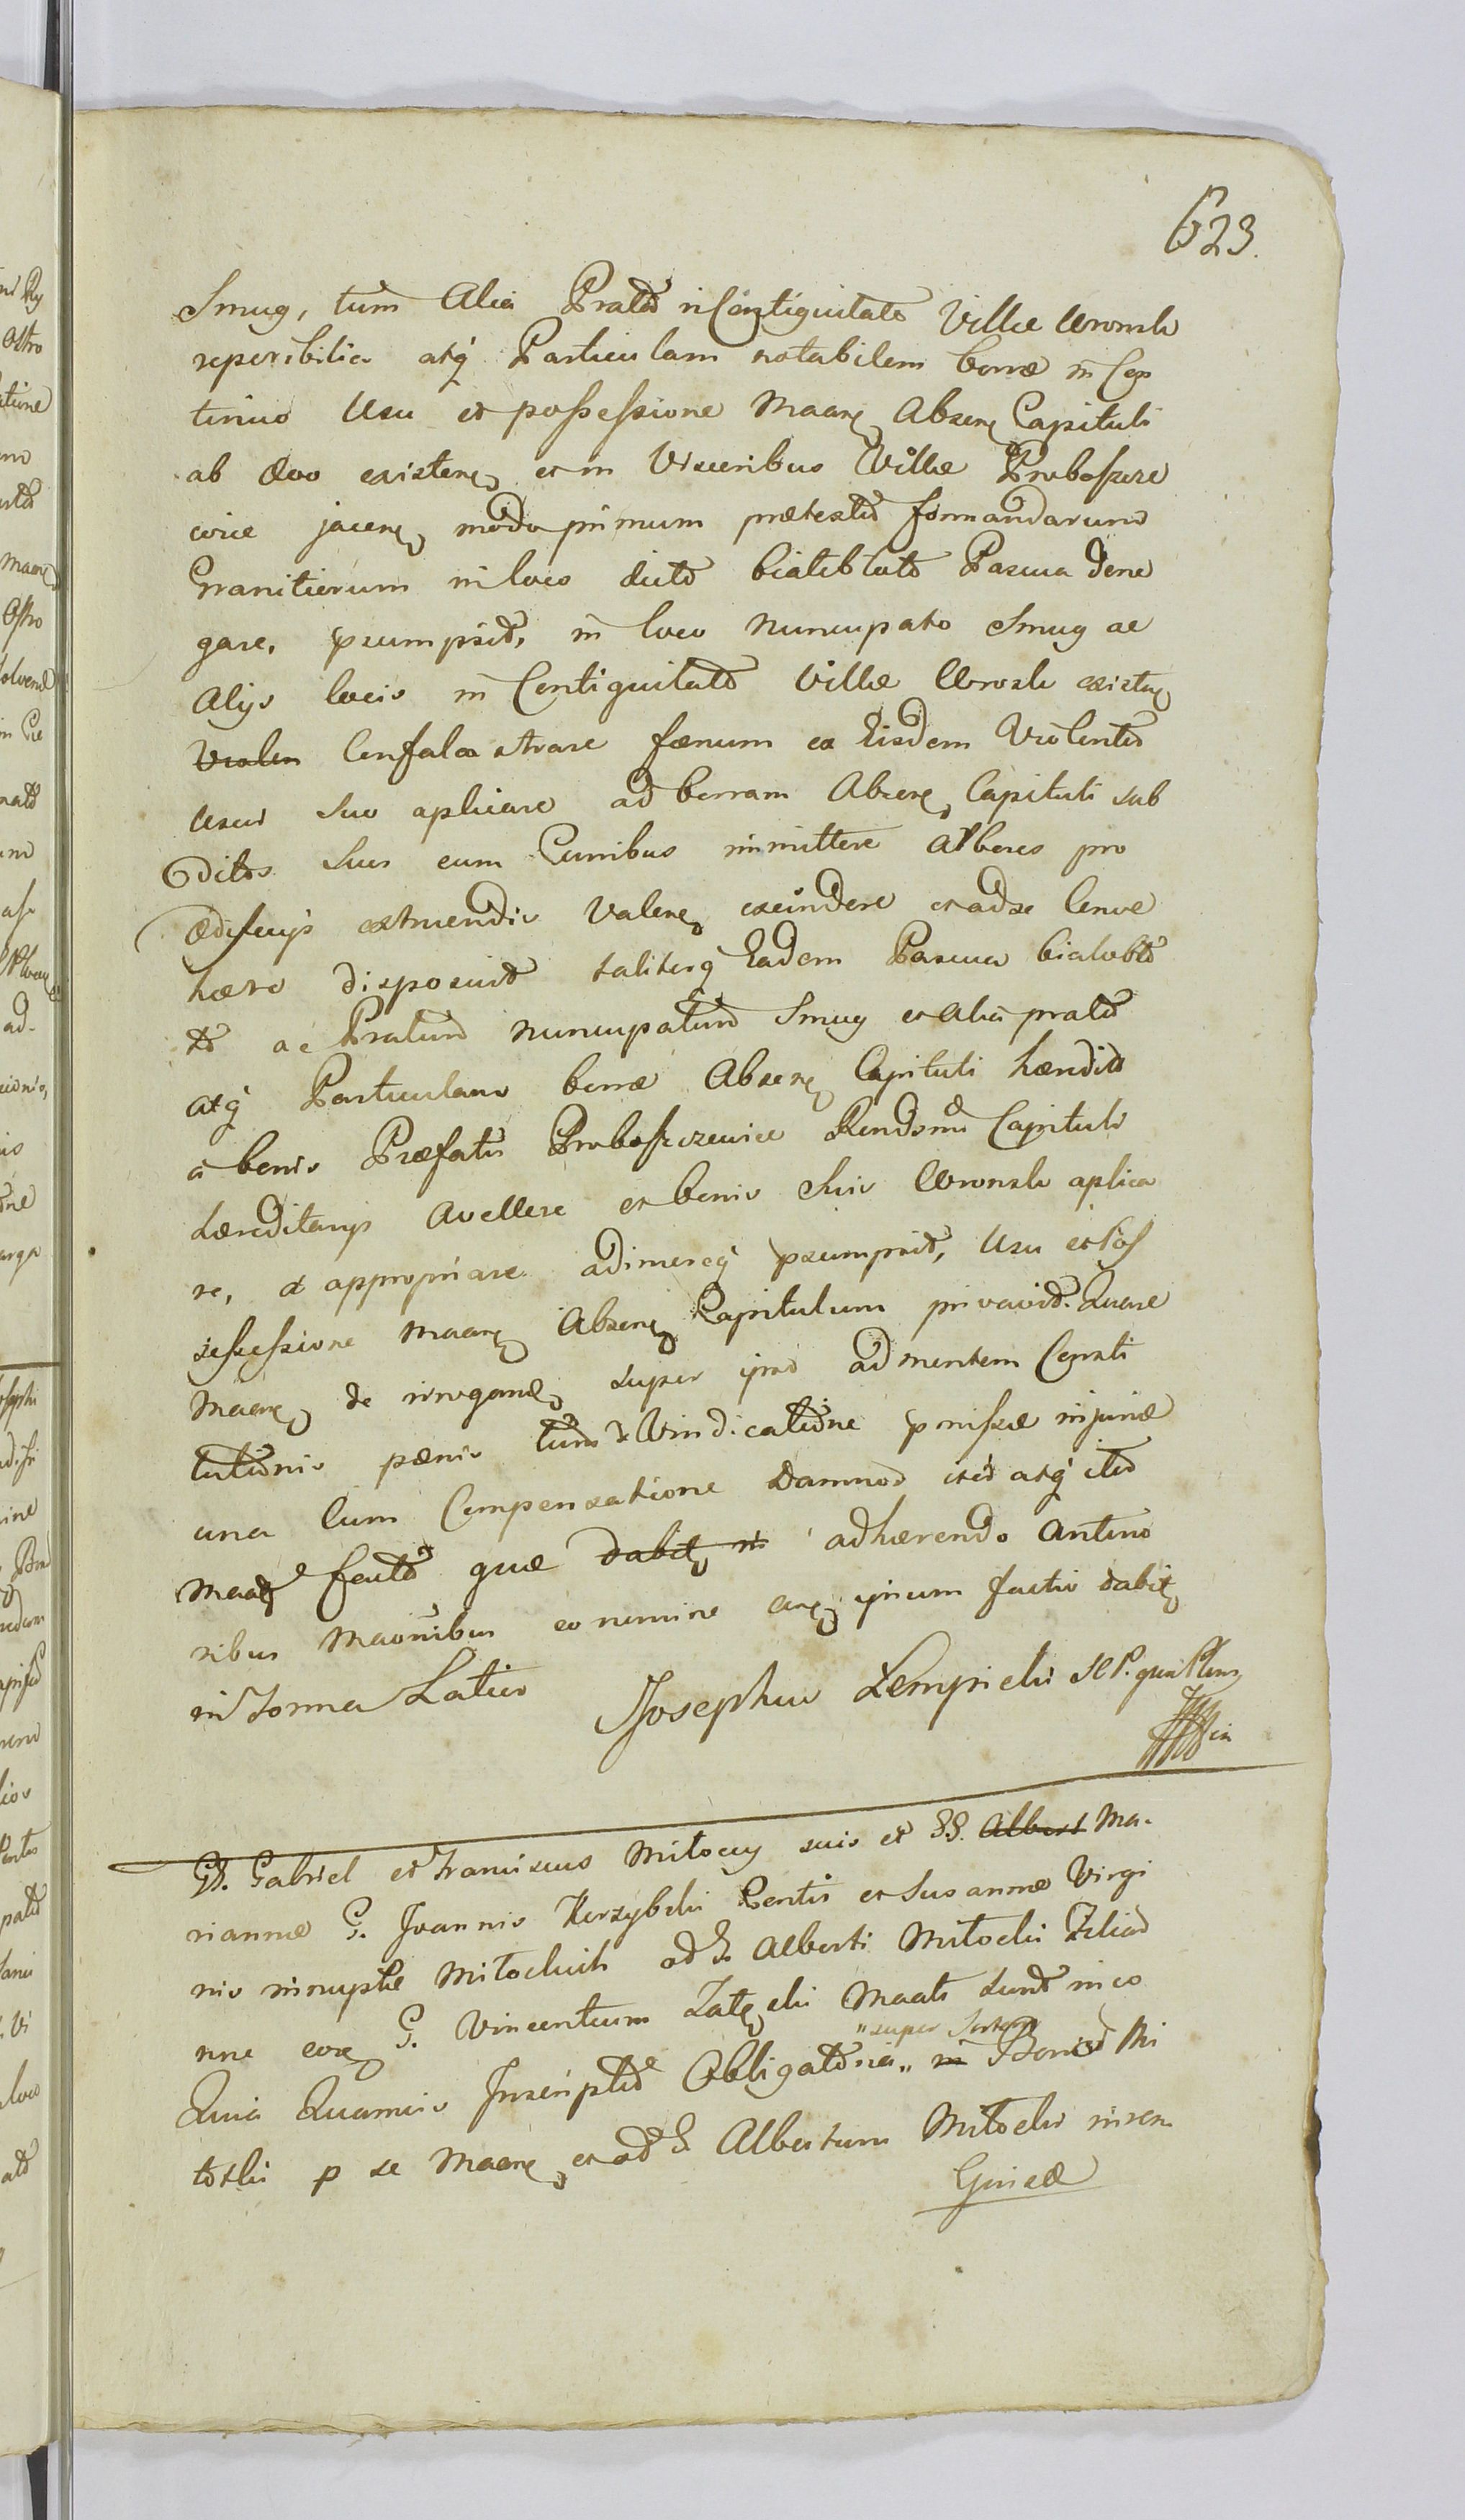 623.
Smug, tum Alia Prata in Contiguitate Villæ Wronsk
reperibilia atq Particulam notabilem terræ in Con
tinuo Usu et possessione Maaren Absren Capituli
ab Ævo existen et in Visceribus Villæ Proboszcze
wice jacen modo primum prætextu formandarum
Granitierum in loco dicto Biatebloto Pascua dene
gare, psumpsit, in loco nuncupato Smug ac
Alijs locis in Contiguitate Villæ Wronsk existen
Violen Confalcastrare fænum ex Eisdem Violenter
Usui suo aplicare ad terram Absren Capituli sub
ditos suos cum Curribus immittere Arbores pro
Ædificijs extruendis Valen excindere et ad se Conve
here disposuit taliterq Eadem Pascua Bialeblo
to ac Pratum nuncupatum Smug et alia prata
atq Particulam terræ Absren Capituli hæredit
a bonis Præfatis Proboszczewice Rendsmi Capituli
hæreditarijs Avellere et bonis suis Wronsk aplica
re, et appropriare adimereq psumpsit, Usu et Pos
sessione Maaren Absren Capitulum privavit. Quare
Maaren de irrogand super ipso ad mentem Consti
tutionis pænis tum Vindicatione pmissæ injuriæ
una Cum Compensatione Damnor atq
facta quæ dabit in adhærendo Anterio
ribus Maonibus eo nomine ipsum factis dabit
in Forma Latius
Josephus Lempicki
GG. Gabriel et Franciscus Mitoccy suis et GG. Albert Ma-
riannæ G. Joannis Kerzybski Contis et Susannæ Virgi
nis innuptæ Mitockich ad G. Alberti Mitocki Filiar
nne core G. Vincentium Maati sunt in eo
Quia Quamvis Inscripte Obligatoria „ in Bonor Mi
„super Sortem
totki p se Maaren et ad G. Albertum Mitocki